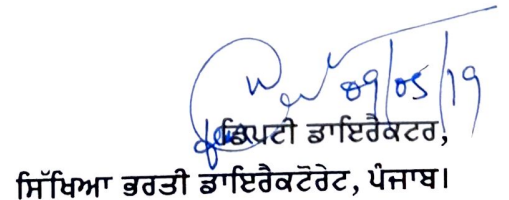 09/05/19
ਡਿਪਟੀ ਡਾਇਰੈਕਟਰ,
ਸਿੱਖਿਆ ਭਰਤੀ ਡਾਇਰੈਕਟੋਰੇਟ, ਪੰਜਾਬ।